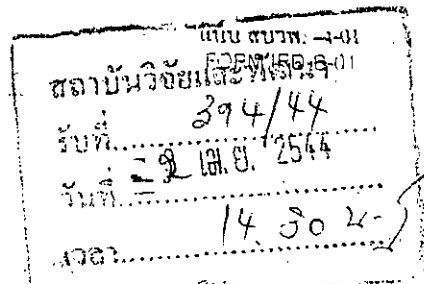 แบบ สบวพ. -4-01
FORM IRD-B-01
สถาบันวิจัยและพัฒนา
รับที่ 394/44
วันที่ - 2 เม.ย. 2544
เวลา 14 30 น.